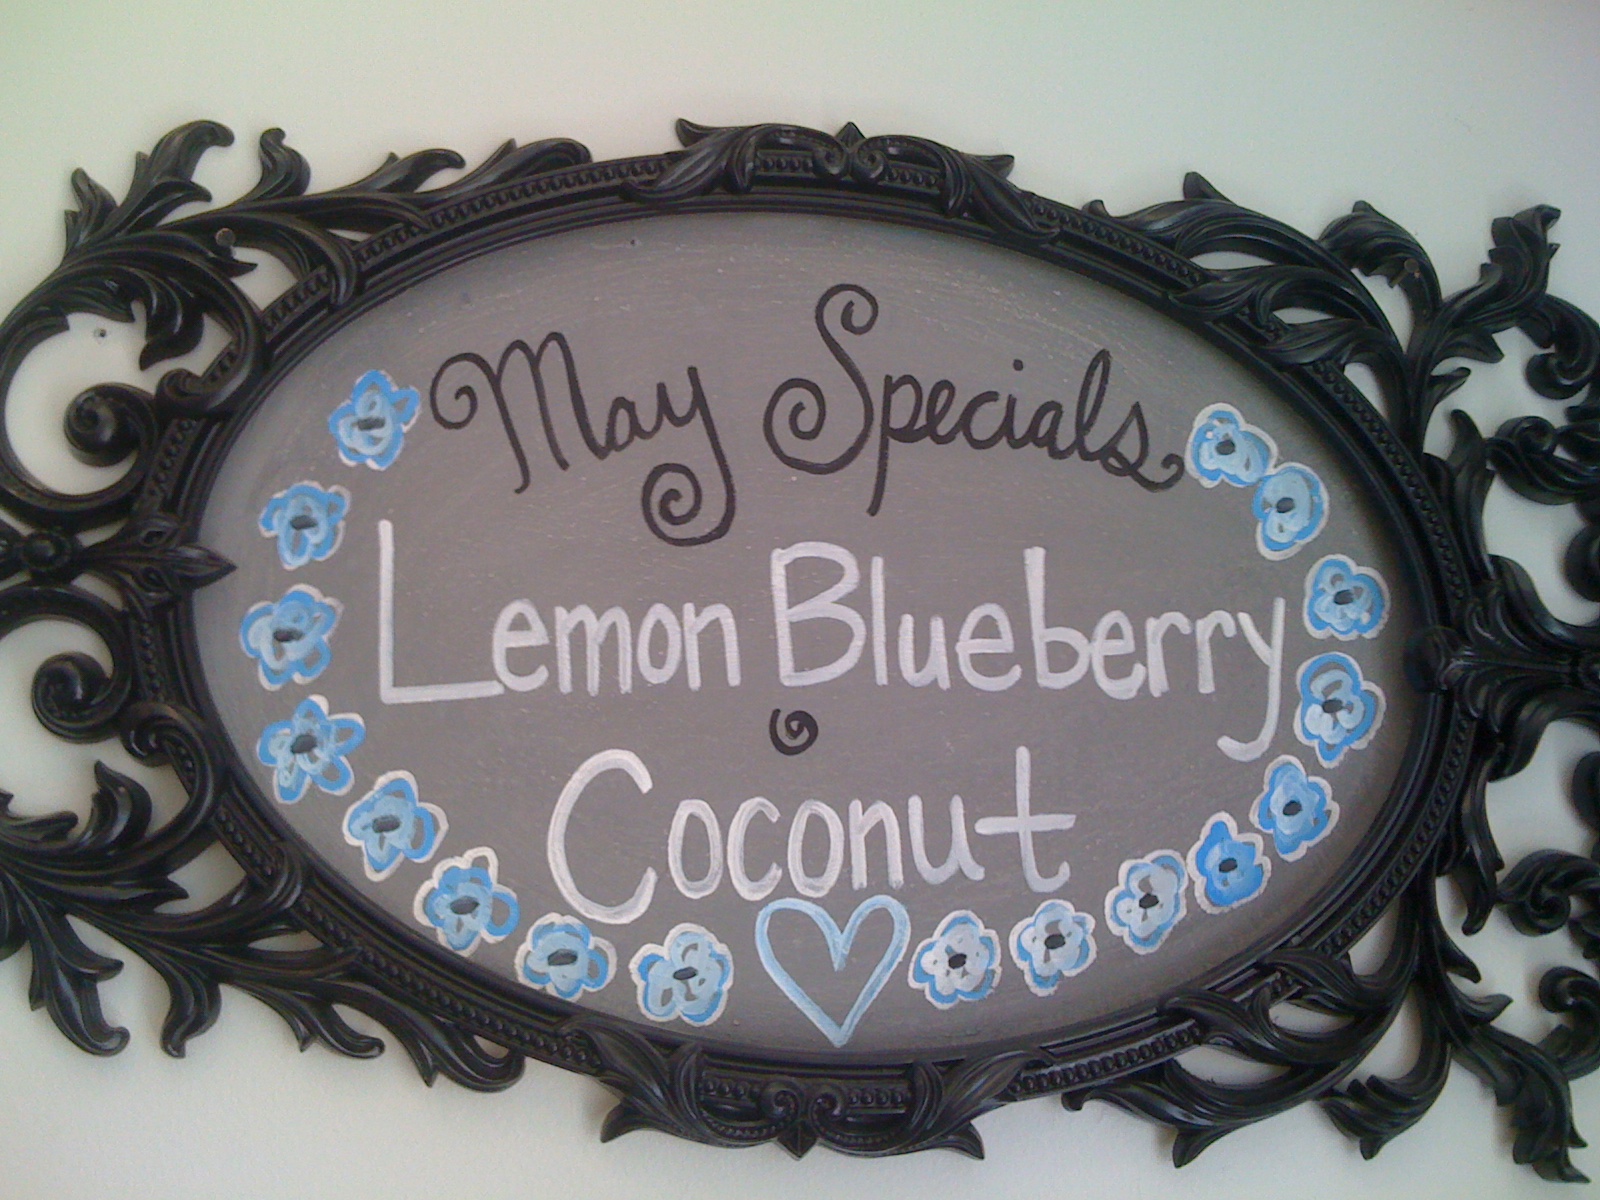 May Specials
Lemon Blueberry
Coconut